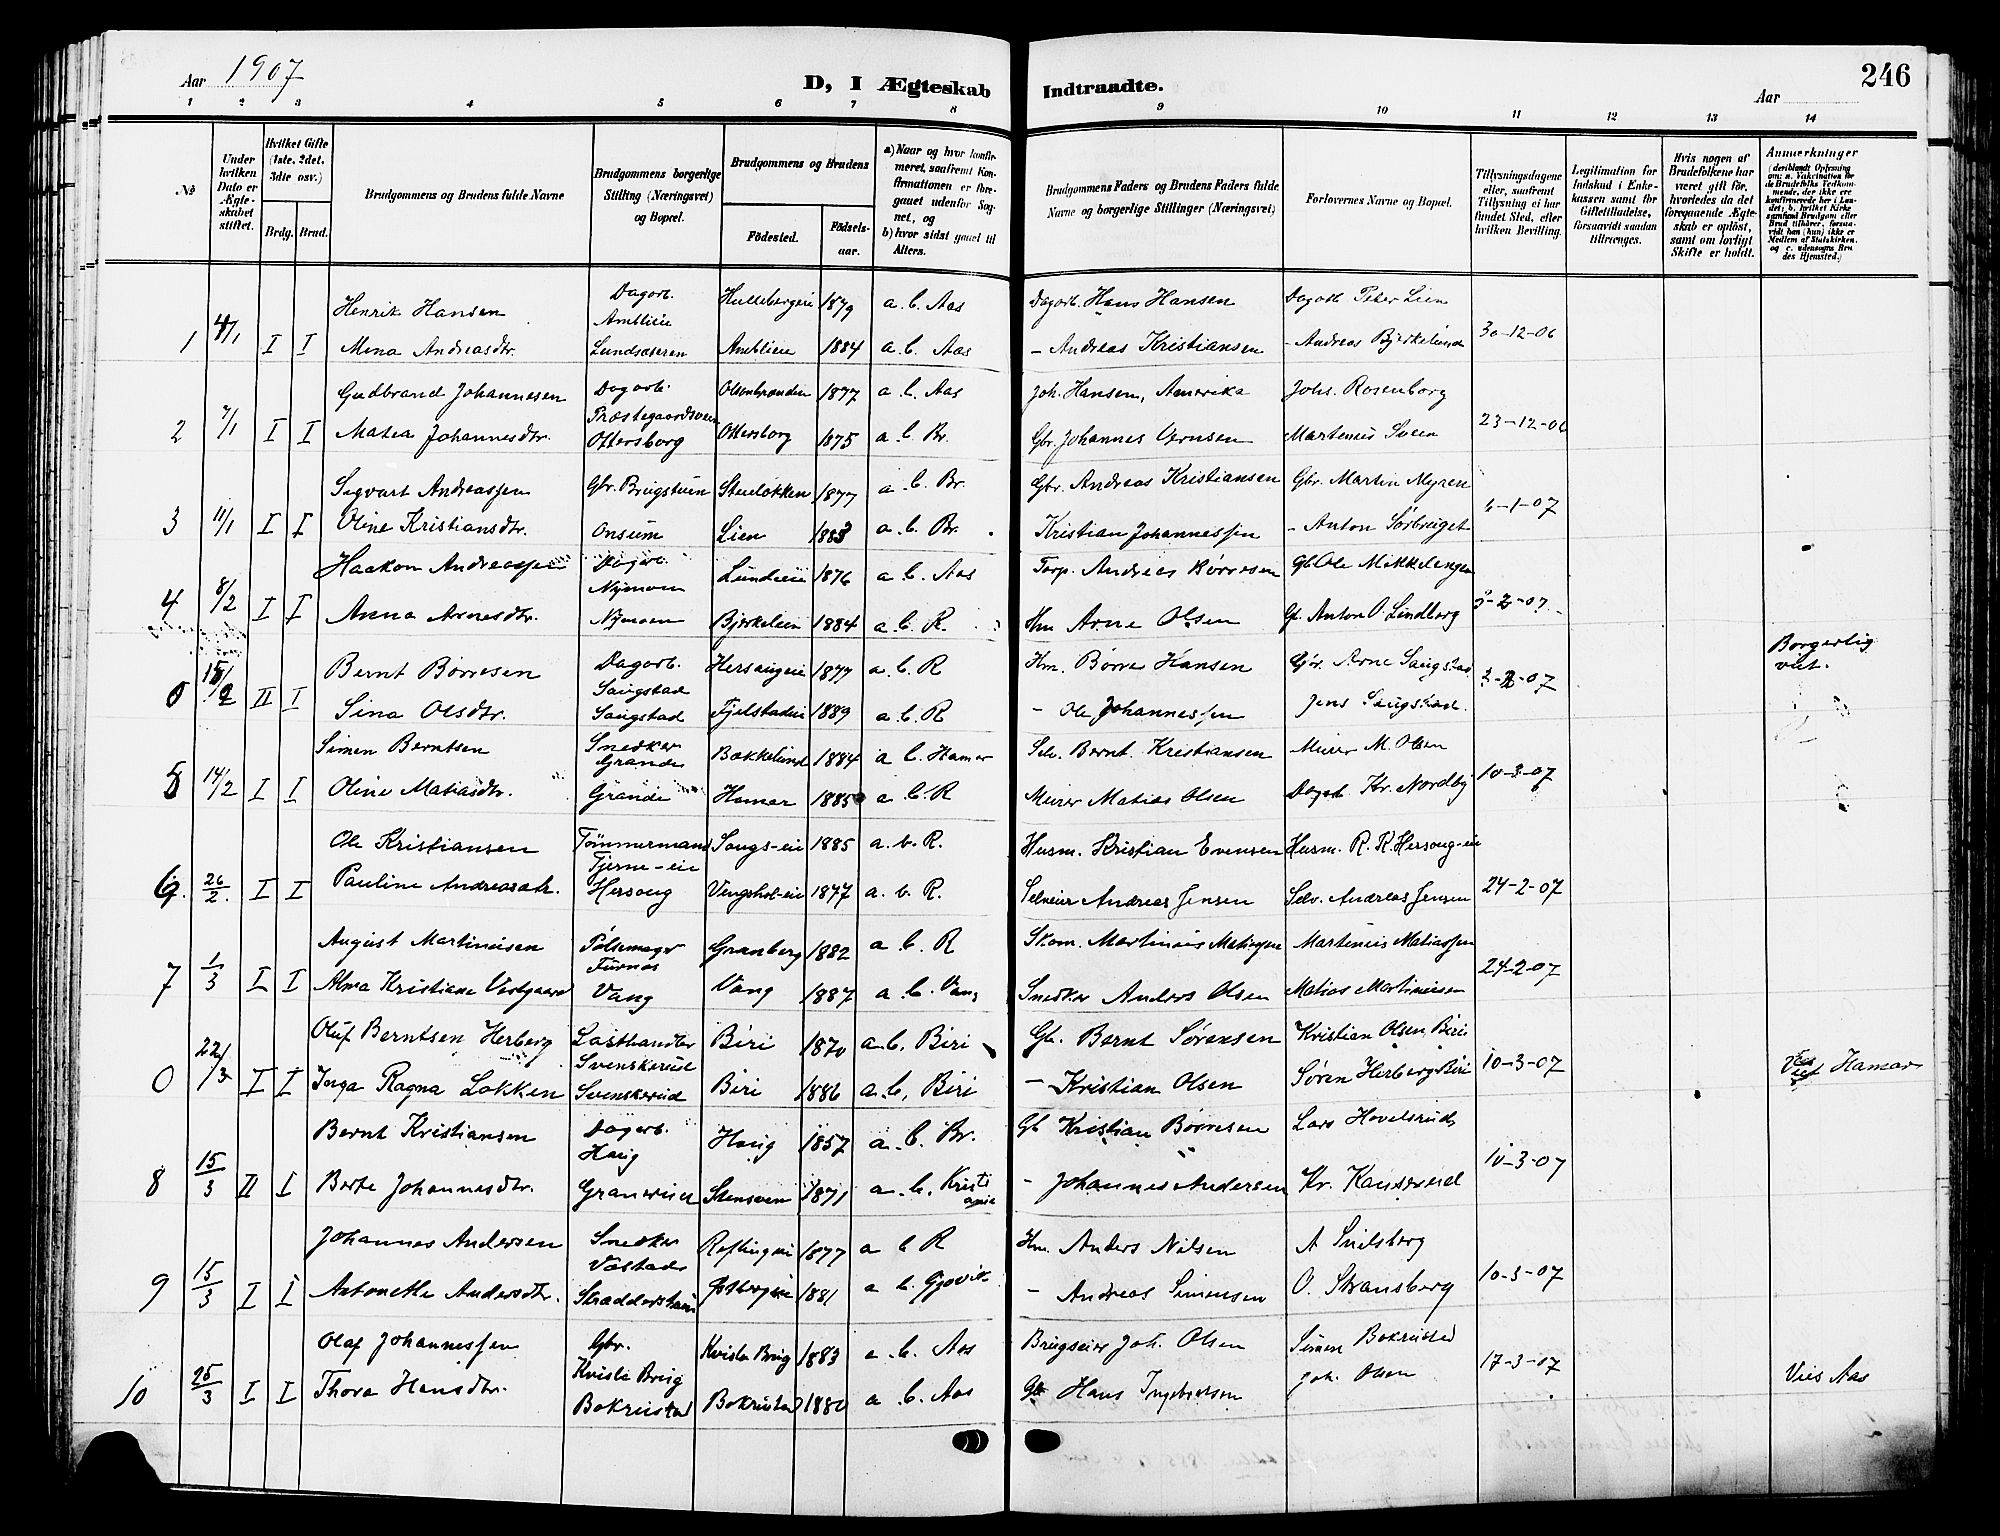 Aar 1907
D, I Ægteskab Indtraadte.
Aar
246
1 2 3 4 5 6 7 8 9 10 11 12 13 14
No
Under hvilken Dato er Ægteskabet stiftet.
Hvilket Gifte (1ste, 2det, 3die osv.)
Brdg. Brud.
Brudgommens og Brudens fulde Navne
Brudgommens borgerlige Stilling (Næringsvei) og Bopæl.
Brudgommens og Brudens
Födested.
Födselsaar.
a) Naar og hvor konfirmeret, saafremt Konfirmationen er foregaaet udenfor Sognet, og
b) hvor sidst gaaet til Alters.
Brudgommens Faders og Brudens Faders fulde Navne og borgerlige Stillinger (Næringsvei)
Forlovernes Navne og Bopæl.
Tillysningsdagene eller, saafremt Tillysning ei har fundet Sted, efter hvilken Bevilling.
Legitimation for Indskud i Enkekassen samt for Giftetilladelse, forsaavidt saadan tiltrænges.
Hvis nogen af Brudefolkene har været gift för, hvorledes da det foregaaende Ægteskab er oplöst, samt om lovligt Skifte er holdt.
Anmærkninger
(deriblandt Oplysning om: a. Vakcination for de Brudefolks Vedkommende, der ikke ere konfirmerede her i Landet; b. hvilket Kirkesamfund Brudgom eller Brud tilhörer, forsaavidt han (hun) ikke er Medlem af Statskirken, og c. udensogns Brudes Hjemsted.)
Henrik Hansen Dagarb. Amblieie 1879 a. b. Aas Dagarb. Hans Hansen Dagarb Peter Lien
1 4/1 I I Mina Andreasdtr. Lundsæteren Amblieie 1884 a. b. Aas - Andreas Kristiansen - Andreas Bjerkelund 30-12-06
Gudbrand Johannesen Dagarb. Olsenbranden 1877 a. b. Aas Joh. Hansen, Amerika Johs. Rosenborg
2 7/1 I I Matea Johannesdtr. Præstegaardsveen Ottersborg Ottersborg 1875 a. b. Br. Gbr. Johannes Martenius Sveen 23-12-06
Sigvart Andreassen Gbr. Brugstuen Stenlökken 1877 a. b. Br. Gbr. Andreas Kristiansen Gbr. Martin Myren
3 11/1 I I Oline Kristiansdtr. Onsum Lien 1883 a. b. Br. Kristian Johannessen - Anton Sörbruget 6-1-07
Haakon Andreassen Dagarb. Nymoen Lundeie 1876 a. b. Aas Torp. Andreas Börresen Gb. Ole Mikkelengen
4 8/2 I I Anna Arnesdtr. Nymoen Bjerkelien 1884 a. b. R. Hm Arne Olsen Gf. Anton O. Lindberg 3-2-07
Bernt Börresen Dagarb. Saugstad Hersaugeie 1877 a. b. R Hm. Börre Hansen Gbr. Arne Saugstad Borgerlig viet.
0 15/2 II I Sina Olsdtr. Saugstad Fjelstadeie 1889 a. b. R - Ole Johannessen Jens Saugstad 3-2-07
Simen Berntsen Snedker Grande Bakkelund 1884 a b. Hamar Selv. Bernt Kristiansen Murer M. Olsen
5 14/2 I I Oline Matiasdtr. Grande Hamar 1885 a b. R Murer Matias Olsen Dagarb. Kr. Nordby 10-3-07
Ole Kristiansen Tömmermand Tjerne-eie Saugs-eie 1885 a. b. R. Husm. Kristian Evensen Husm. R. R. Hersoug-eie
6. 26/2. I I Pauline Andreasdtr. Hersoug Vingshol-eie 1877 a. b. R. Selveier Andreas Jensen Selv. Andreas Jensen 24-2-07
August Martinisen Pölsemager Furnæs Granberg 1882 a b. R Skom. Martinius Matiassen Martinius Matiassen
7 1/3 I I Alma Kristiane Vestgaard Vang Vang 1887 a b. Vang Snedker Anders Olsen Matias Martinisen 24-2-07
Oluf Berntsen Herberg Lasthandler Svenskerud Biri 1870 a. b. Biri Gb. Bernt Sörensen Kristian Olsen, Biri
0 22/3 I I Inga Ragna Løkken Svenskerud Biri 1886 a. b. Biri - Kristian Olsen Søren Herberg, Biri 10-3-07 Hamar
Bernt Kristiansen Dagarb. Haug Haug 1857 a. b. Br. Gb Kristian Börresen Lars Hovelsrud
8 15/3 II I Berte Johannesdtr. Granerud Stensveen 1871 a. b. Kristiania - Johannes Andersen Kr. Kanserud 10-3-07
Johannes Andersen Snedker Vastads Roflingeie 1877 a b R Hm. Anders Nilsen A Snilsberg
9 15/3 I I Antonette Andersdtr. 1881 a b. Gjøvik - Andreas Simensen O. Stransberg 10-3-07
Olaf Johannessen Gbr. Kvisla Brug Kvisla Brug 1883 a. b. Aas Brugseier Joh. Olsen Simen Bokrustad
10 25/3 I I Thora Hansdtr. Bokrustad Bokrustad 1880 a b. Aas Gb Hans Ingebretsen Joh. Olsen 17-3-07 Vies Aas